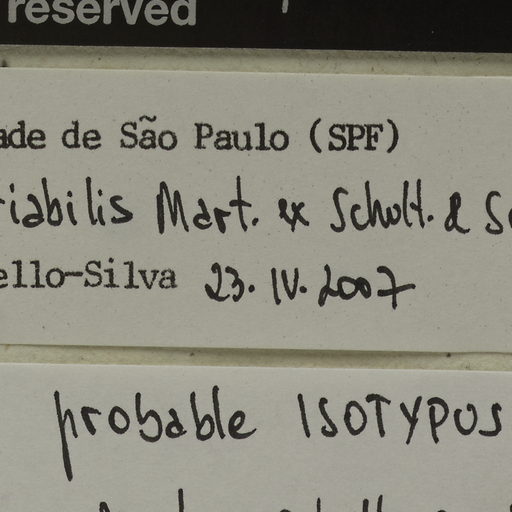 reserved
ade de São Paulo (SPF)
riabilis Mart. ex Schult. & Sc
ello-Silva 23.IV.2007
probable ISOTYPUS